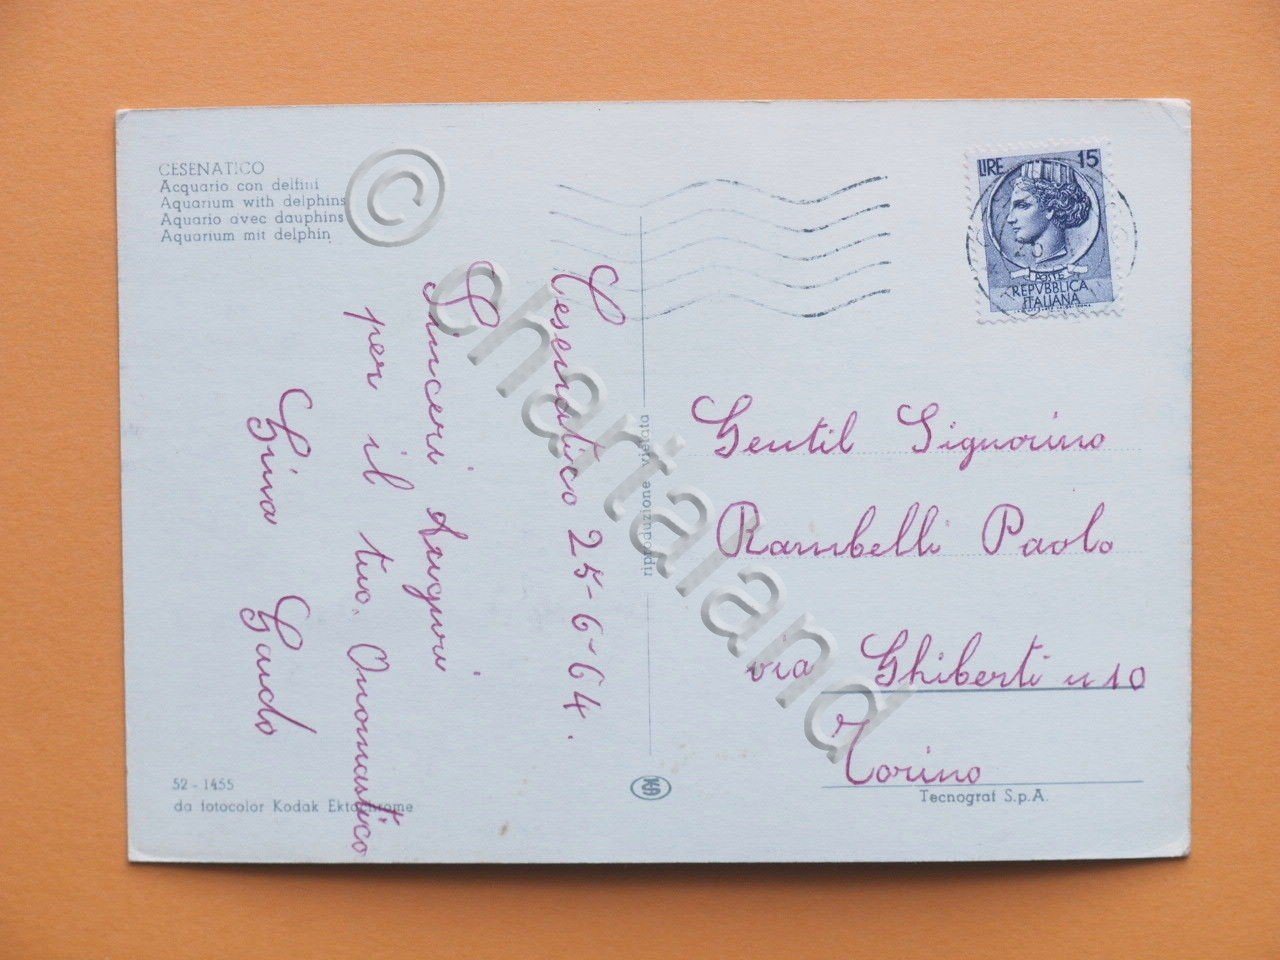 CESENATICO
Acquario con delfini
Aquarium with delphins
Aquario avec dauphins
Aquarium mit delphin
Cesenatico 25-6-64.
Sinceri Auguri
per il tuo Onomastico
Guido
LIRE 15
POSTE
REPVBBLICA
ITALIANA
Gentil Signorino
Rambelli Paolo
via Ghiberti n 10
Torino
riproduzione vietata
52 - 1455
da fotocolor Kodak Ektachrome
Tecnograf S.p.A.
© chartaland